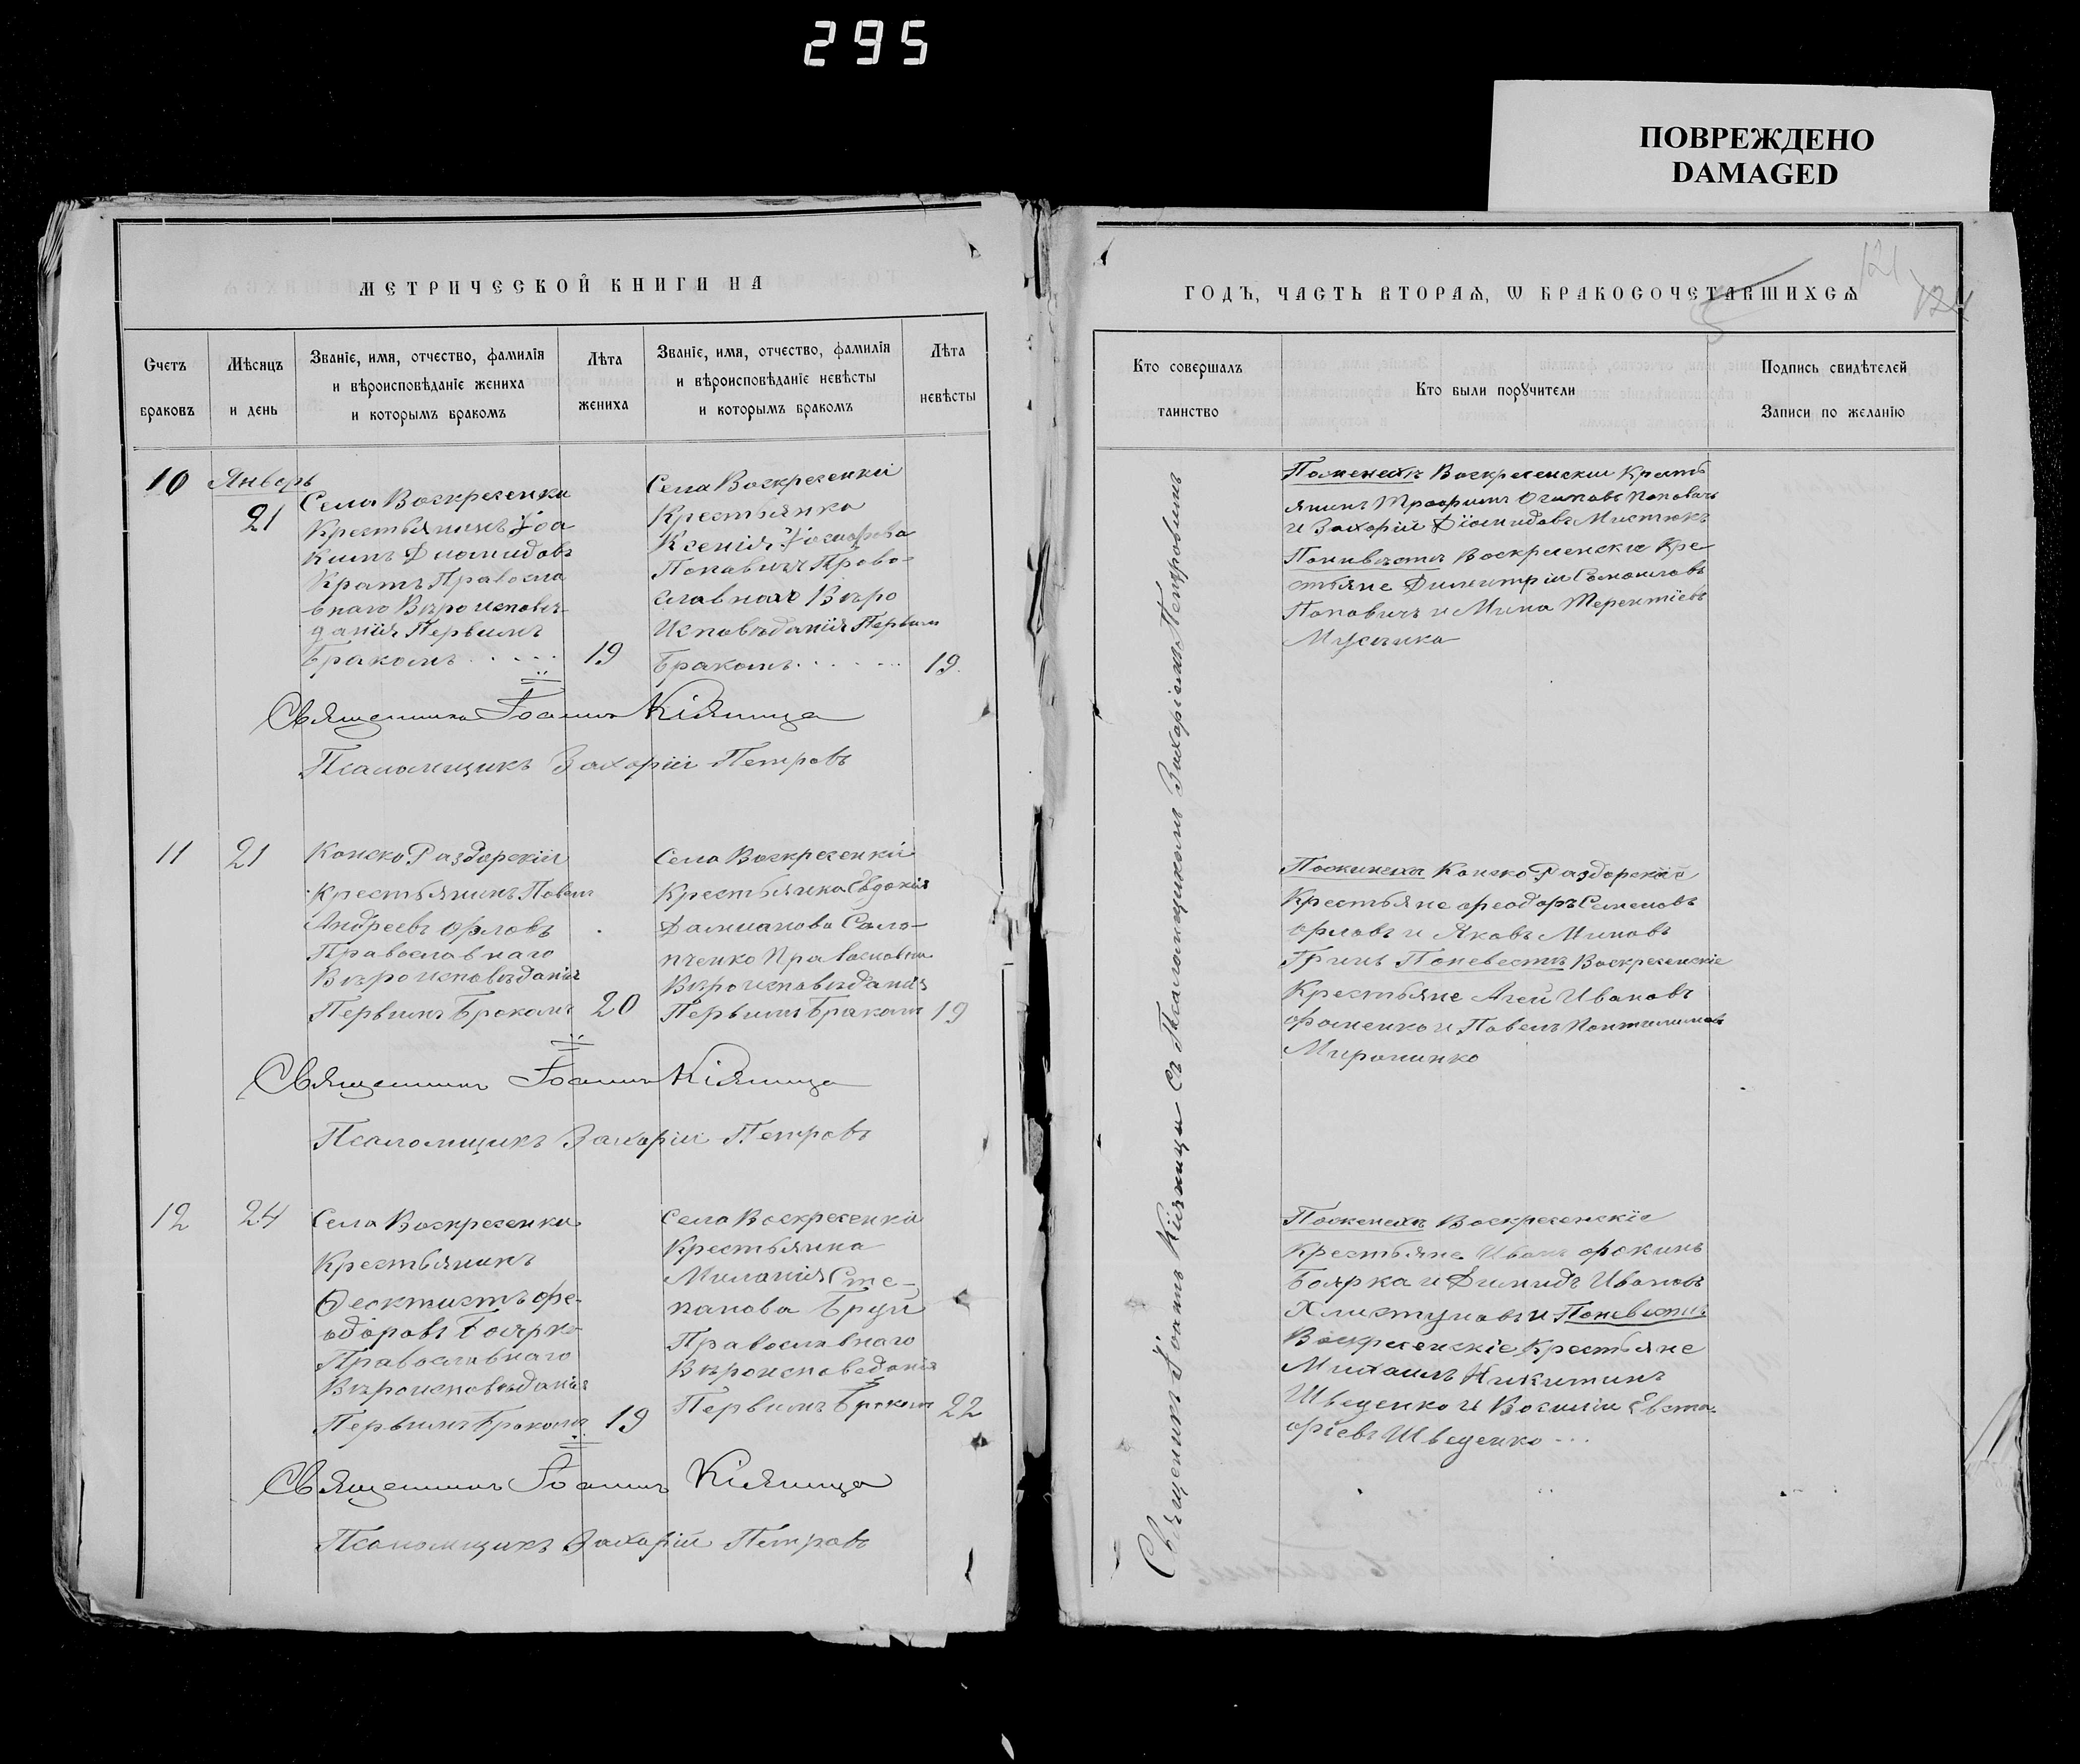 295
ПОВРЕЖДЕНО
DAMAGED
МЕТРИЧЕСКОЙ КНИГИ НА
Счетъ
браковъ
Мѣсяцъ
и день
Званіе, имя, отчество, фамилія
и вѣроисповѣданіе жениха
и которымъ бракомъ
Лѣта
жениха
Званіе, имя, отчество, фамилія
и вѣроисповѣданіе невѣсты
и которымъ бракомъ
Лѣта
невѣсты
10
Январь
21
Села Воскресенки
Крестьянинъ Іоа
кимъ Диомидовъ
Православ
наго Вѣроисповѣ-
данія Первымъ
Бракомъ
19
Села Воскресенки
Крестьянка
Ксенія
Поповичъ Право-
славнаго Вѣро
Исповѣданія Первым
Бракомъ
19
Священникъ Іоаннъ Кіяница
Псаломщикъ Захарій Петровъ
11
21
Конско Раздорскій
Крестьянинъ Павелъ
Андреевъ Орловъ
Православнаго
Вѣроисповѣданія
Первымъ Бракомъ
20
Села Воскресенки
Крестьянка Евдокія
Дамианова Само-
пченко Православна
Вѣроисповѣданія
Первымъ Бракомъ
19
Священникъ Іоаннъ Кіяница
Псаломщикъ Захарій Петровъ
12
24
Села Воскресенки
Крестьянинъ
Феоктистъ Фе-
одоровъ Боярко
Православнаго
Вѣроисповѣданія
Первымъ Бракомъ
19
Села Воскресенки
Крестьянка
Миланія Сте-
панова Бруй
Православнаго
Вѣроисповеданія
Первымъ Бракомъ
22
Священникъ Іоаннъ Кіяница
Псаломщикъ Захарій Петровъ
ГОДЪ, ЧАСТЬ ВТОРАѦ, Ѡ БРАКОСОЧЕТАВШИХСѦ
121
124
Кто совершалъ
таинство
Кто были порꙋчители
Подпись свидѣтелей
Записи по желанію
Священникъ Іоаннъ Кіяница съ Псаломщикомъ Захаріемъ Петровымъ
Воскресенскіи Кресть
янинъ Трофимъ Поповичъ
и Захарій Діомидовъ
Поневѣстѣ Воскресенскіе Кре
стьяне Димитрій Самоиловъ
Поповичъ и Мина Терентіевъ
Конско Раздорскіе
Крестьяне Феодоръ Семеновъ
Орловъ и Яковъ Миновъ
Гринь Поневестѣ Воскресенскіе
Крестьяне Агей Ивановъ
Фоменко и Павелъ Понтилимовъ
Миროненко
Воскресенскіе
Крестьяне Иванъ Фокинъ
Боярка и Димидъ Ивановъ
Хлистуновъ и Поневестѣ
Воскресенскіе Крестьяне
Михаилъ Никитинъ
Шведенко и Василій Евста
фіевъ Шведенко